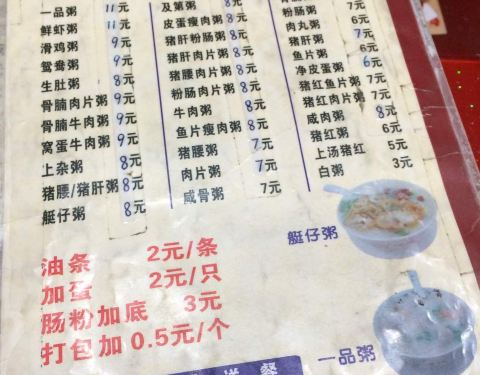 一品粥 11元
鲜虾粥 11元
滑鸡粥 9元
鸳鸯粥 9元
生肚粥 8元
骨腩肉片粥 9元
骨腩牛肉粥 9元
窝蛋牛肉粥 9元
上杂粥 8元
猪腰/猪肝粥 8元
艇仔粥 8元
及第粥 8元
皮蛋瘦肉粥 8元
猪肝粉肠粥 8元
猪肝肉片粥 8元
猪腰肉片粥 8元
粉肠肉片粥 8元
牛肉粥 8元
鱼片瘦肉粥 8元
猪腰粥 7元
肉片粥 7元
咸骨粥 7元
粉肠粥 7元
肉丸粥 7元
猪肝粥 7元
鱼片粥 6元
净皮蛋粥 6元
猪红鱼片粥 7元
猪红肉片粥 7元
咸肉粥 8元
猪红粥 6元
上汤猪红 5元
白粥 3元
艇仔粥
油条 2元/条
加蛋 2元/只
肠粉加底 3元
打包加 0.5元/个
一品粥